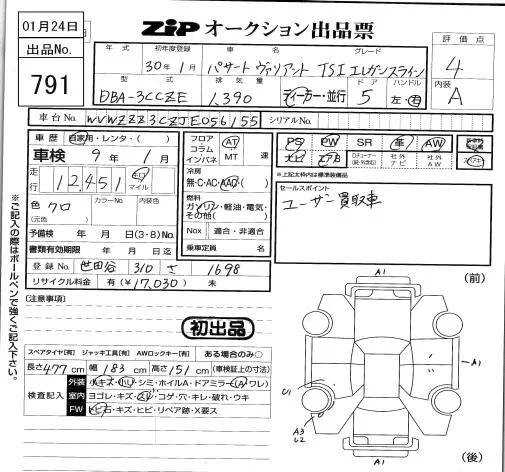 01月24日
ZIP オークション出品票
出品No.
791
年式 初年度登録 車名 グレード
30年1月 パサート ヴァリアント TSI エレガンスライン
型式 排気量 ドア ハンドル
DBA-3CCZE 1,390 ディーラー・並行 5 左・右
評価点
4
内装
A
車台No. WVWZZZ3CZJE056155 シリアルNo.
車歴 自家用・レンタ・( )
車検 9年1月
走行 12,451 キロ マイル
色 クロ カラーNo. 内装色
(元色)
予備検 年 月 日(3・8)No.
書類有効期限 年 月 日迄
登録No. 世田谷 310 さ 1698
リサイクル料金 有(¥17,030) 未
フロア コラム インパネ AT MT 速
冷房
無・C・AC・AAC
燃料
ガソリン・軽油・電気・その他( )
Nox 適合・非適合
乗車定員 名
PS PW SR 革 AW
ナビ エアB Dチューナー 社外ナビ 社外AW
※上記太枠内は標準装備品
セールスポイント
ユーザー買取車
[注意事項]
初出品
スペアタイヤ[有] ジャッキ工具[有] AWロックキー[有] ある場合のみ○
長さ477cm 幅183cm 高さ151cm (車検証上の寸法)
検査記入
外装 小キズ・小凹・シミ・ホイルA・ドアミラー(A・ワレ)
室内 ヨゴレ・キズ・スレ・コゲ・穴・キレ・破れ・ウキ
FW トビ石・キズ・ヒビ・リペア跡・X要ス
※ご記入の際はボールペンで強くご記入下さい。
A1
(前)
A1
U1
A3
U2
A1
(後)